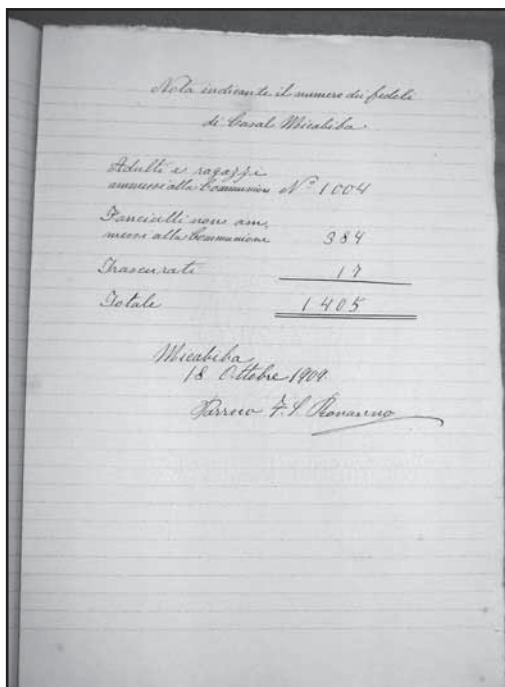 Nota indicante il numero dei fedeli
di Casal Micabiba
Adulti e ragazzi
ammessi alla Communione Nº 1004
Fanciulli non am,
messi alla Communione 384
Trascurati 17
Totale 1405
Micabiba
18 Ottobre 1909.
Parroco F. S.